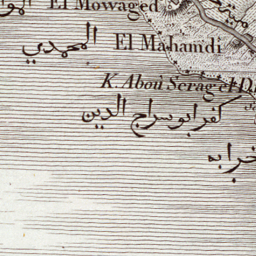 El Mowaged
المحمدي El Mahamdi
K. Aboù Serag el D
كفر ابو سراج الدين
خرابه